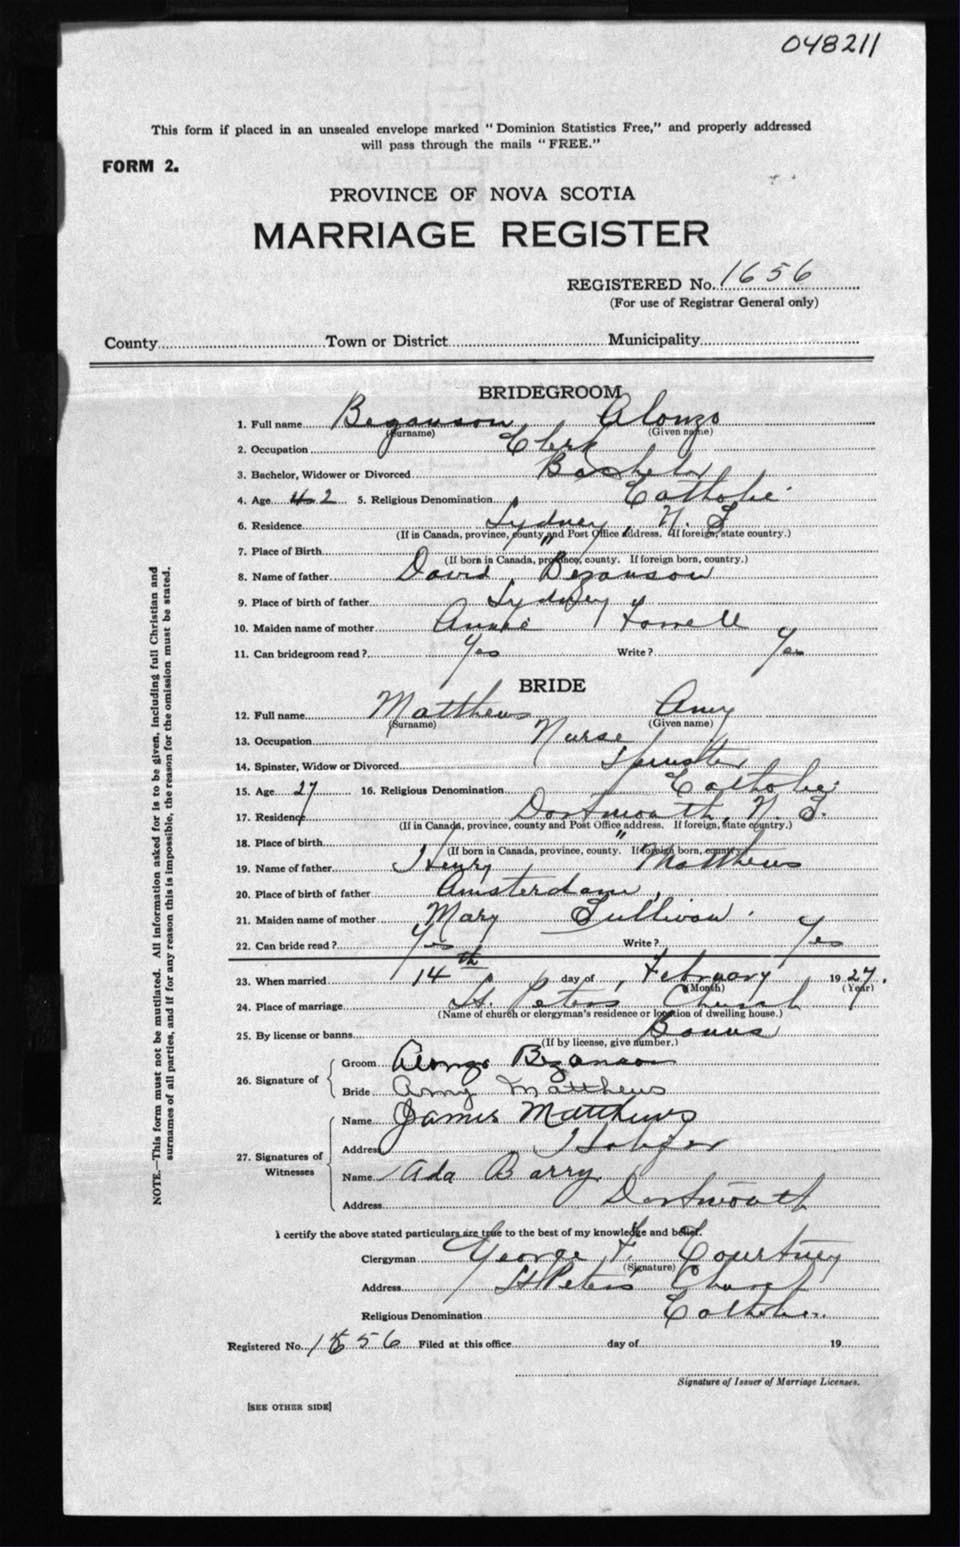 048211
This form if placed in an unsealed envelope marked "Dominion Statistics Free," and properly addressed
will pass through the mails "FREE."
FORM 2.
PROVINCE OF NOVA SCOTIA
MARRIAGE REGISTER
REGISTERED No. 1656
(For use of Registrar General only)
County Town or District Municipality
BRIDEGROOM
1. Full name Bezanson Alonzo
(Surname) (Given name)
2. Occupation Clerk
3. Bachelor, Widower or Divorced Bachelor
4. Age 42 5. Religious Denomination Catholic
6. Residence Sydney, N. S
(If in Canada, province, county and Post Office address. If foreign, state country.)
7. Place of Birth "
(If born in Canada, province, county. If foreign born, country.)
8. Name of father David Bezanson
9. Place of birth of father Sydney
10. Maiden name of mother Annie
11. Can bridegroom read? Yes Write? Yes
BRIDE
12. Full name Matthews Amy
(Surname) (Given name)
13. Occupation Nurse
14. Spinster, Widow or Divorced Spinster
15. Age 27 16. Religious Denomination Catholic
17. Residence Dartmouth, N. S.
(If in Canada, province, county and Post Office address. If foreign, state country.)
18. Place of birth "
(If born in Canada, province, county. If foreign born, country.)
19. Name of father Henry Matthews
20. Place of birth of father Amsterdam,
21. Maiden name of mother Mary Sullivan.
22. Can bride read? Yes Write? Yes
23. When married 14th day of February 1927.
(Month) (Year)
24. Place of marriage St. Peters Church
(Name of church or clergyman's residence or location of dwelling house.)
25. By license or banns Banns
(If by license, give number.)
26. Signature of { Groom Alonzo Bezanson
Bride Amy Matthews
27. Signatures of Witnesses { Name James Matthews
Address
Name Ada Barry
Address Dartmouth
I certify the above stated particulars are true to the best of my knowledge and belief.
Clergyman George F. Courtney
(Signature)
Address St Peters Church
Religious Denomination Catholic.
Registered No. 1656 Filed at this office day of 19
Signature of Issuer of Marriage Licenses.
[SEE OTHER SIDE]
NOTE.—This form must not be mutilated. All information asked for is to be given, including full Christian and
surnames of all parties, and if for any reason this is impossible, the reason for the omission must be stated.